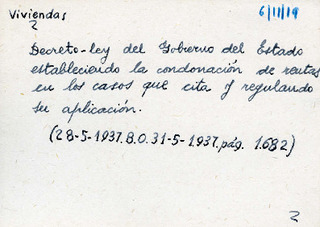 Viviendas
2
6/11/19
Decreto-ley del Gobierno del Estado
estableciendo la condonación de rentas
en los casos que cita y regulando
su aplicación.
(28-5-1937.B.O.31-5-1937.pág. 1.682)
2